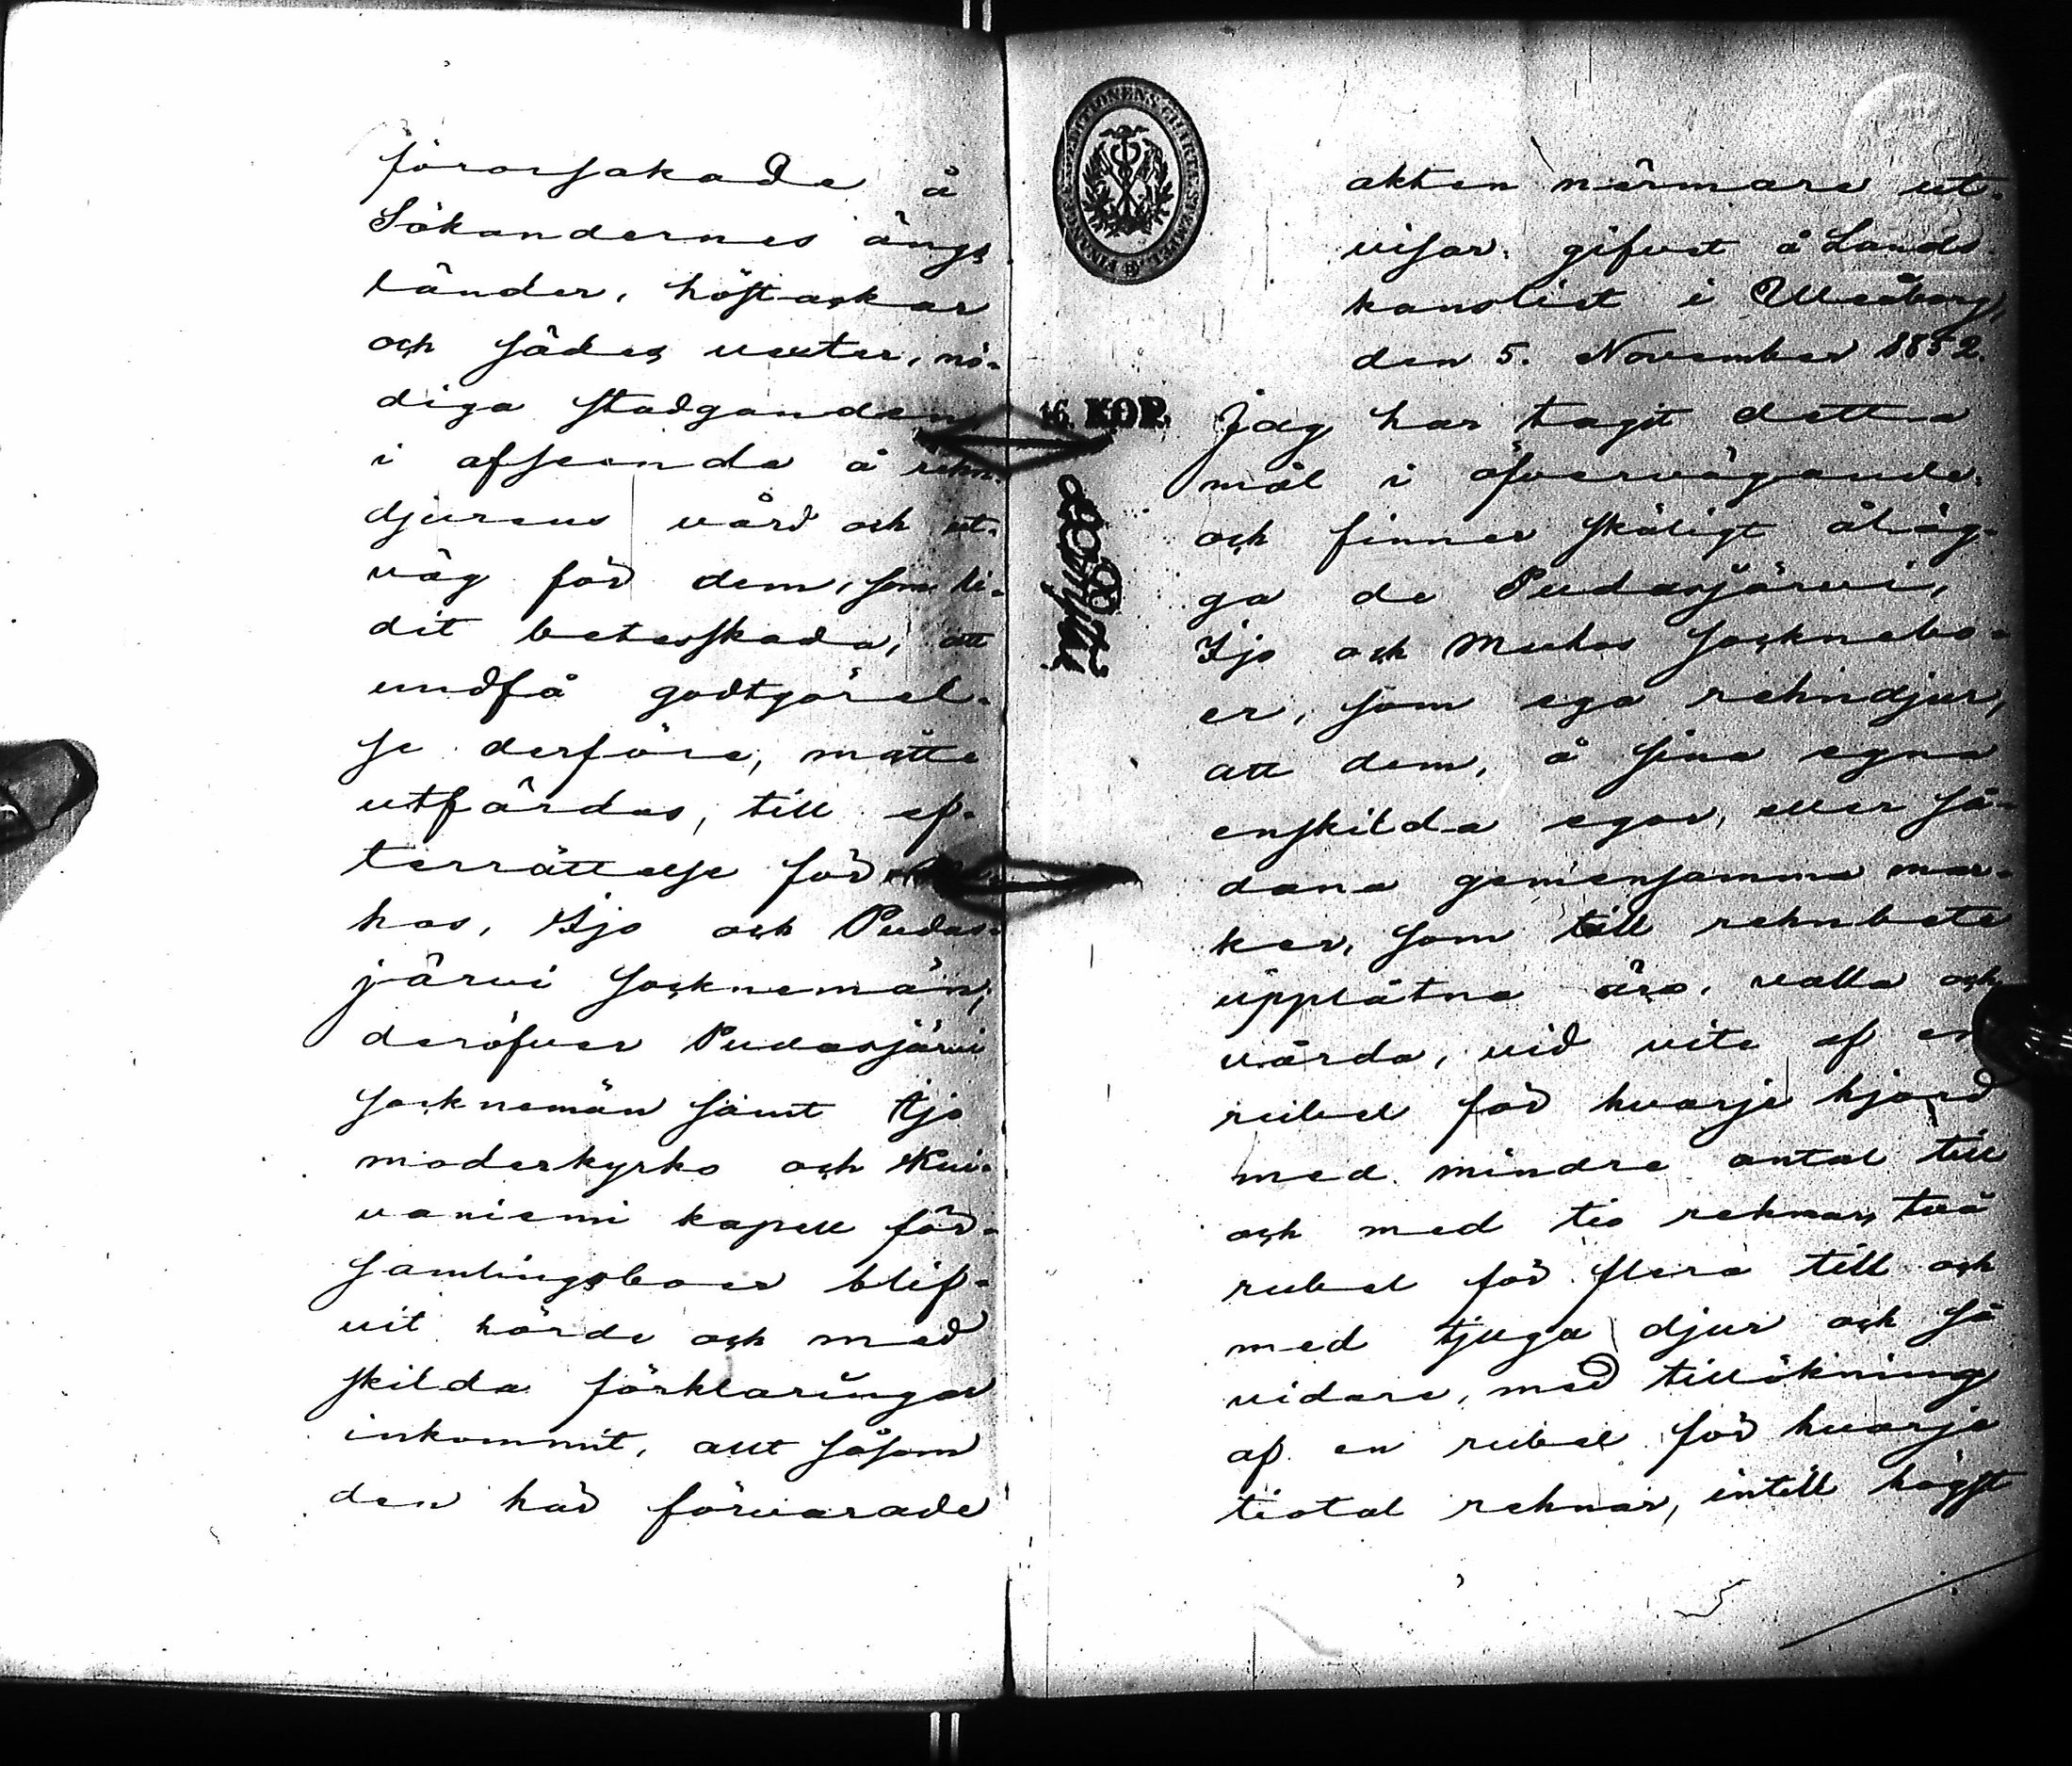 förorsakade å
Sökandernes ängs
länder, höstackar
och sädes vexter, nö-
diga stadganden
i afseende å rehn-
djurens vård och ut-
väg för dem, som li-
dit betesskada, att
undfå godtgörel-
se derföre, måtte
utfärdas, till ef-
terrättelse för
hos, Ijo och Pudas-
järvi socknemän;
deröfver Pudasjärvi
socknemän samt Ijo
moderkyrko och Kui-
vaniemi kapell för-
samlingsboer blif-
vit hörde och med
skilda förklaringar
inkommit, allt såsom
den här förvarade
FINANCE EXPEDITIONENS CHARTÆ STÄMPEL
16. KOP.
akten närmare ut-
visar. gifvet å Lands
kansliet i Uleåborg,
den 5. November 1852.
Jag har tagit detta
mål i öfvervägande,
och finner skäligt åläg-
ga de Pudasjärvi,
Ijo och Muhos socknebo-
er, som ega rehndjur,
att dem, å sina egna
enskilda egor, eller så-
dana gemensamma mar-
ker, som till rehnbete
upplåtna äro, valla och
vårda, vid vite af en
rubel för hvarje hjord
med mindre antal till
och med tio rehnar, två
rubel för flera till och
med tjugu djur och så
vidare, med tillökning
af en rubel för hvarje
tiotal rehnar, intill högst